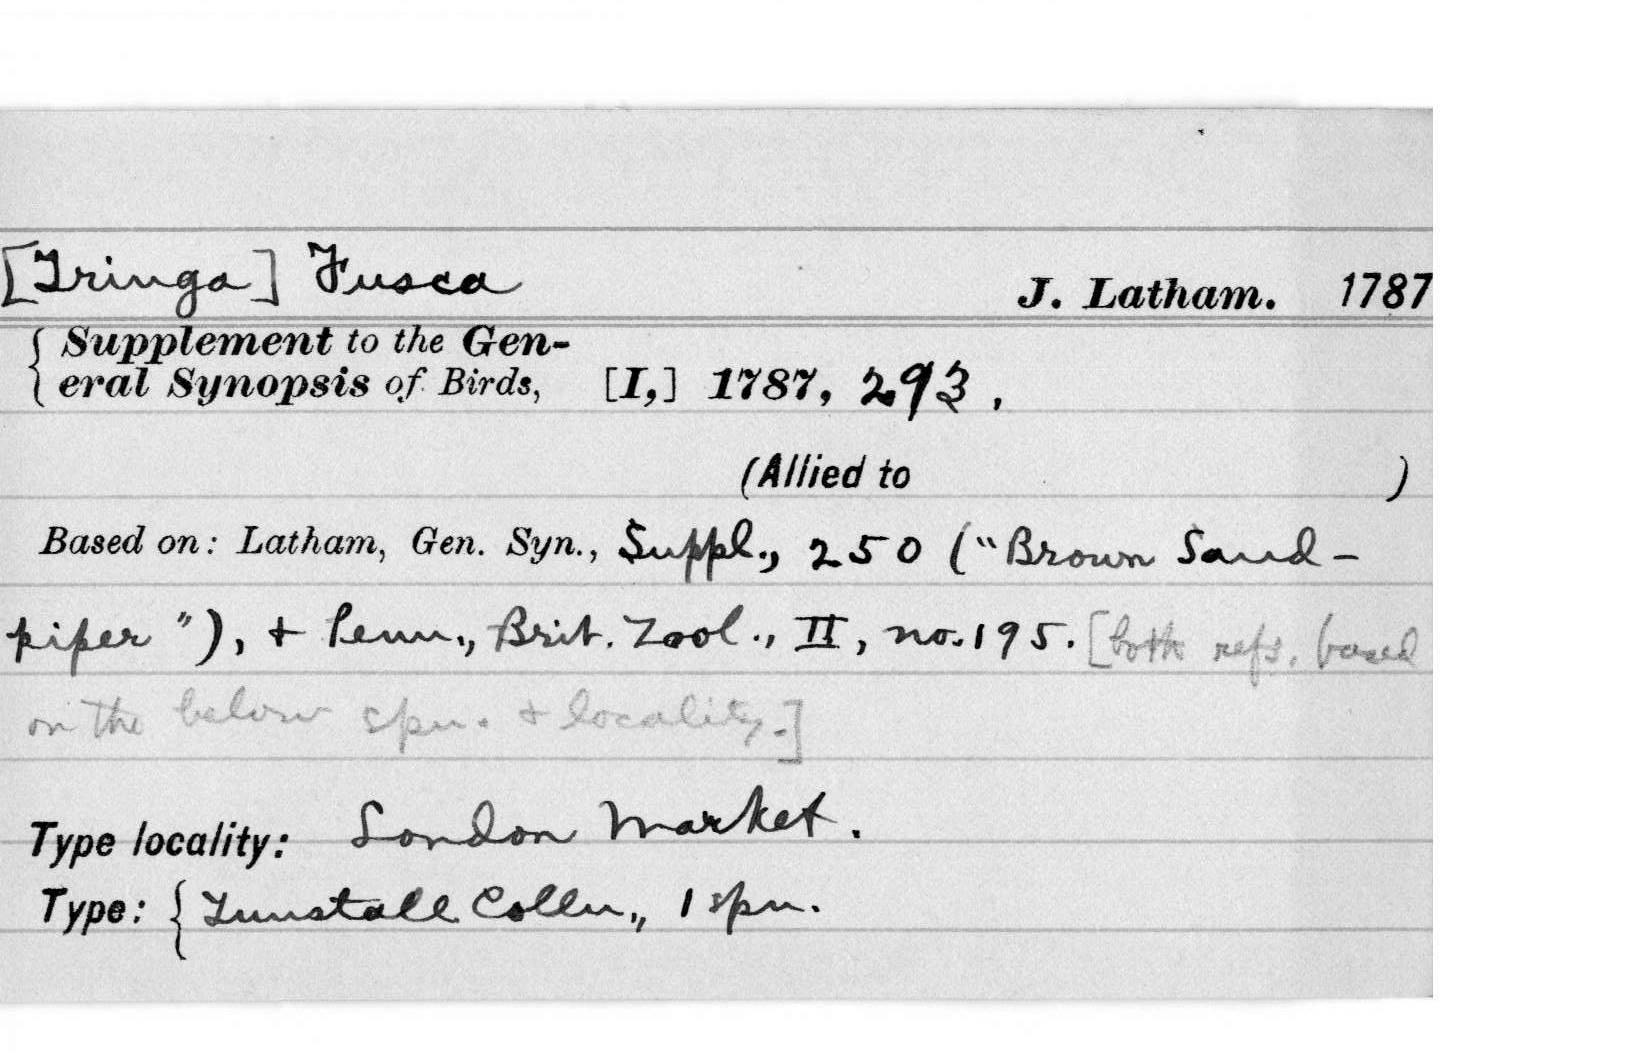 [Tringa] Fusca J. Latham. 1787
{ Supplement to the Gen-
eral Synopsis of Birds, [I,] 1787, 293.
(Allied to )
Based on: Latham, Gen. Syn., Suppl., 250 ("Brown Sand-
piper"), + Penn., Brit. Zool., II, no. 195. [both refs. based
on the below spn. + locality.]
Type locality: London Market.
Type: { Tunstall Colln., 1 spn.